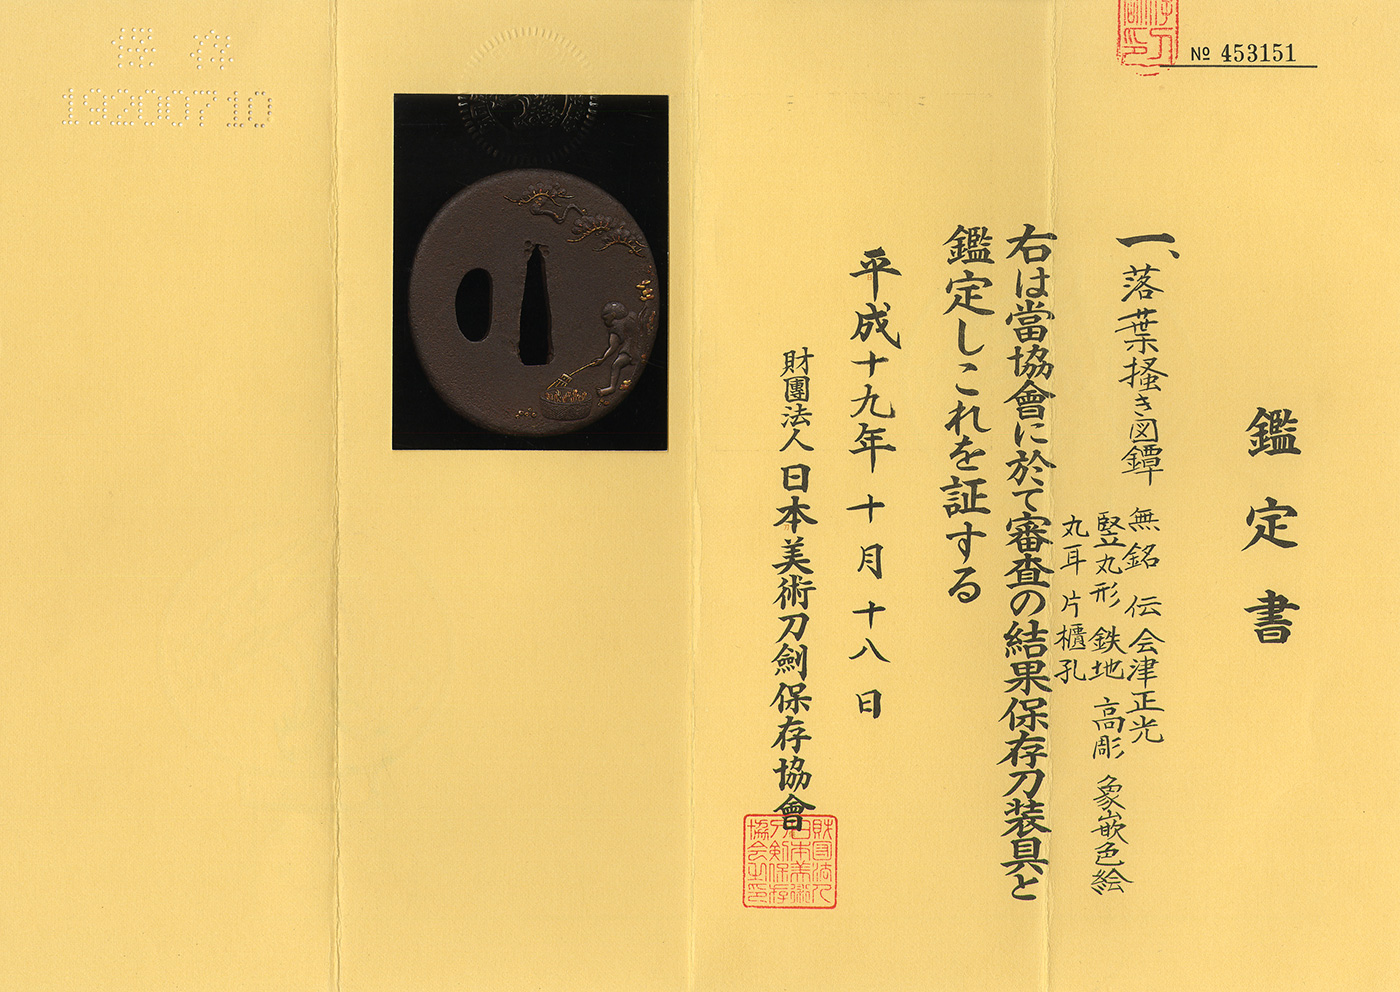 № 453151
鑑定書
一、落葉掻き図鐔
無銘 伝会津正光
竪丸形 鉄地 高彫 象嵌色絵
丸耳 片櫃孔
右は當協會に於て審査の結果保存刀装具と
鑑定しこれを証する
平成十九年十月十八日
財團法人 日本美術刀劍保存協會
財団法人
日本美術
刀剣保存
協会之印
保存
19200710